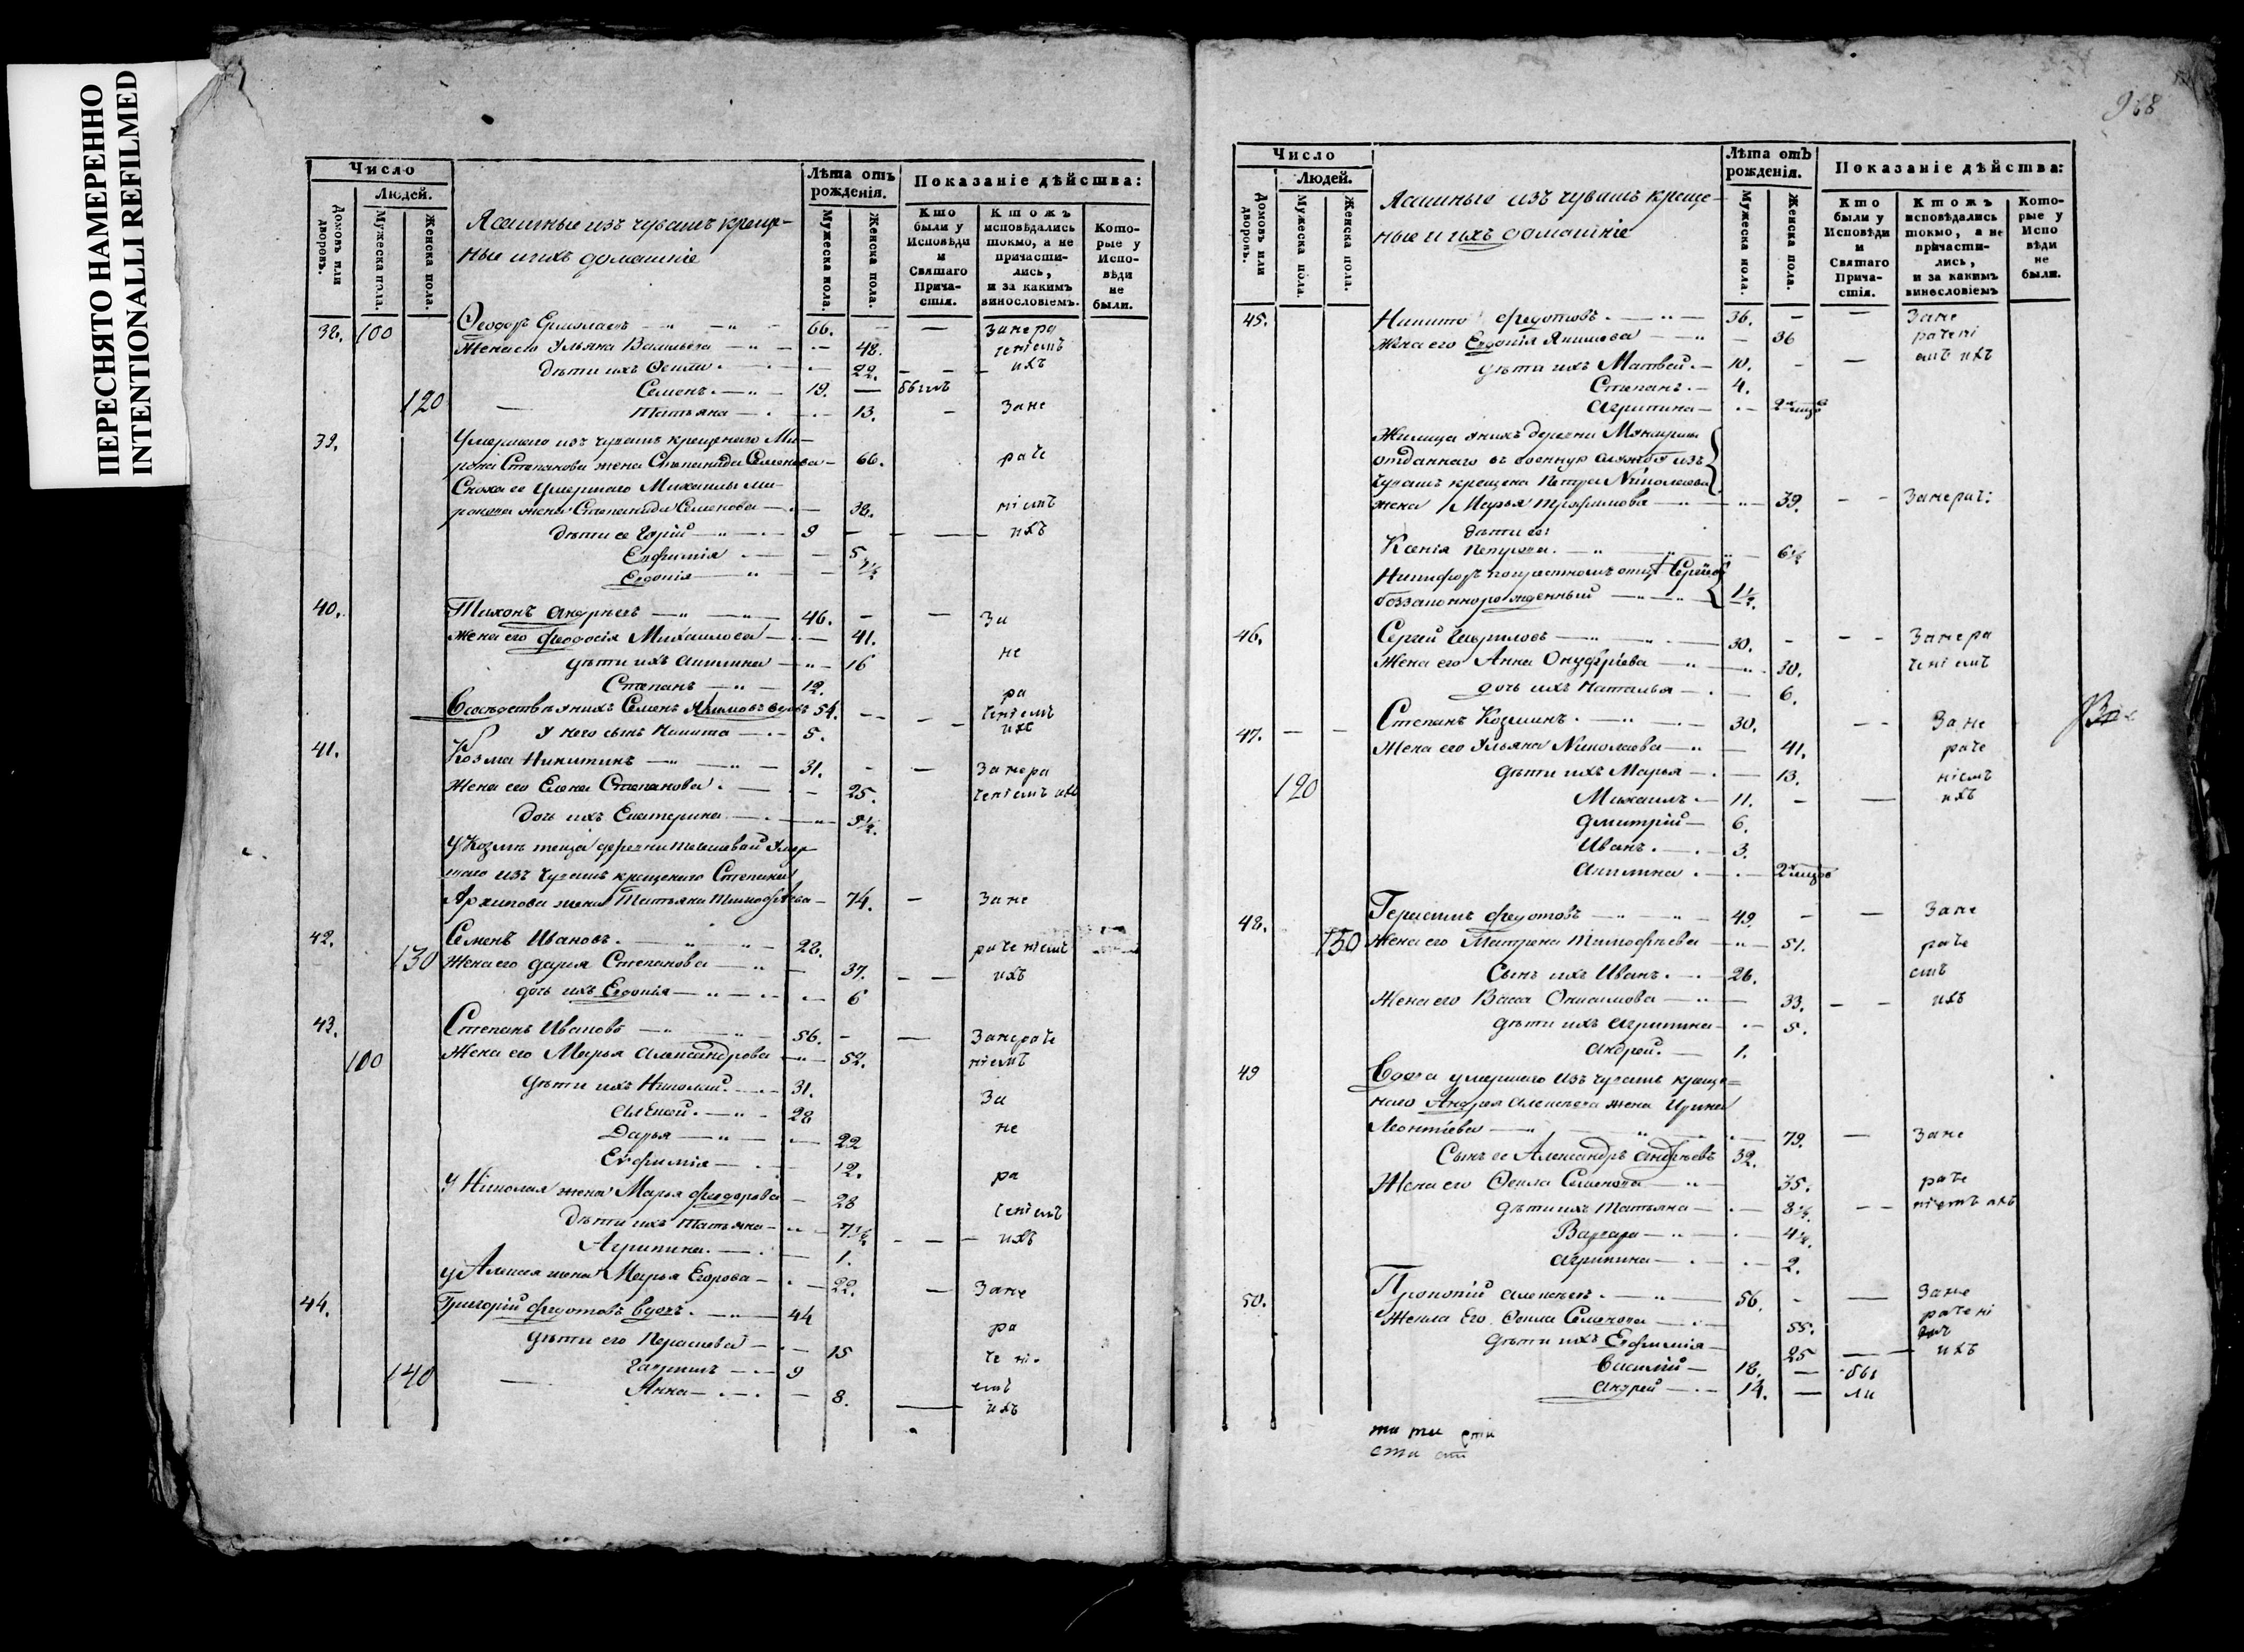 ПЕРЕСНЯТО НАМЕРЕННО
INTENTIONALLI REFILMED
Число
Людей.
Домовъ или дворовъ.
Мужеска пола.
Женска пола.
Ясашные изъ чувашъ креще-
ные и ихъ домашніе
Лѣта отъ рожденія.
Мужеска пола.
Женска пола.
Показаніе дѣйства:
Кто были у Исповѣди и Святаго Прича-стія.
Ктожъ исповѣдались токмо, а не причасти-лись, и за какимъ винословіемъ.
Кото-рые у Испо-вѣди не были.
38. 100 Ѳеодоръ Ермолаевъ 66. Занера
Жена его Ульяна Васильева 48. ченіемъ
дѣти ихъ Ѳекла 22. ихъ
Семенъ. 19. былъ
120 Татьяна 13. Зане
39. Умершаго изъ чувашъ крещенаго Ми-
рона Степанова жена Степанида Семенова 66. раче
Сноха ее умершаго Михаилы Ми-
ронова жена Степанида Семенова 38. ніемъ
дѣти ее 9 ихъ
Евфимія 5
Евдокія 1½
40. Тихонъ Андреевъ 46. За
жена его Феодосія Михаилова 41.
не
дѣти ихъ Акилина 16
Степанъ 12. ра
Всосѣдствѣ унихъ Семенъ Якимовъ вдовъ 54. ченіемъ
У него сынъ Никита 5. ихъ
41. Козма Никитинъ 31. Занера
Жена его Елена Степанова. 25. ченіемъ ихъ
дочь ихъ Екатерина
У Козмы теща деревни умер
шаго изъ чувашъ крещенаго Степана
Архипова жена Татьяна Тимофѣева 74. Зане
42. Семенъ Ивановъ. 28. раченіемъ
130 Жена его Дарья Степанова 37. ихъ
дочь ихъ Евдокія 6
43. Степанъ Ивановъ 56. Занераче
100 Жена его Марья Александрова 52. ніемъ
дѣти ихъ Николай. 31. За
Алексѣй. 28
не
Дарья 22
Евфимія 12. ра
У Николая жена Марья Феодорова 28 ченіемъ
дѣти ихъ Татьяна 7½ ихъ
Агрипина. 1.
у Алексея жена Марья Егорова 22. Зане
44. Григорій Федотовъ вдовъ. 44 ра
дѣти его Парасковья 15 чені
140 Гаврилъ 9 емъ
Анна 8. ихъ
968
Число
Людей.
Домовъ или дворовъ.
Мужеска пола.
Женска пола.
Ясашные изъ чувашъ креще-
ные и ихъ домашніе
Лѣта отъ рожденія.
Мужеска пола.
Женска пола.
Показаніе дѣйства:
Кто были у Исповѣди и Святаго Прича-стія.
Ктожъ исповѣдались токмо, а не причасти-лись, и за какимъ винословіемъ
Кото-рые у Испо вѣди не были.
45. Никита Федотовъ. 36. Зане
Жена его Евдокія Якимова 36 рачені
дѣти ихъ Матвей. 10. емъ ихъ
Степанъ. 4.
Агрипина
Жилица унихъ деревни
отданнаго въ военную службу изъ
чувашъ крещена Петра Николаева
жена Марья Трофимова 39. Занерач:
дѣти ее:
Ксенія Петрова. 6½
Никифоръ
беззаконнорожденный 1½.
46. Сергей Гавриловъ 30. Занера
Жена его Анна Онуфріева 30. ченіемъ
дочь ихъ Наталья 6.
47. Степанъ Козминъ. 30. Зане
Жена его Ульяна Николаева 41. раче
дѣти ихъ Марья 13. ніемъ
120 Михаилъ. 11. ихъ
Дмитрій 6.
Иванъ. 3.
Акилина.
48. Герасимъ Федотовъ 49. Зане
150 Жена его Матрена Тимофѣева 51. раче
Сынъ ихъ Иванъ. 26. емъ
Жена его Васса Онисимова 33. ихъ
дѣти ихъ Агрипина 5.
Андрей. 1.
49 Вдова умершаго изъ чувашъ креще-
наго Андрея Алексѣева жена Ирина
Леонтіева 79. Зане
Сынъ ее Александръ Андреевъ 32.
Жена его Ѳекла Семенова 35. раче
дѣти ихъ Татьяна 8½. ніемъ ихъ
Варвара 4½.
Агрипина 2.
50. Прокопій Алексѣевъ. 56. Зане
Жена Его Ѳекла Семенова 55. рачені
емъ
дѣти ихъ Евфимія 25 ихъ
Василій 18. бы
Андрей 14. ли
ти ти сти
сти сти